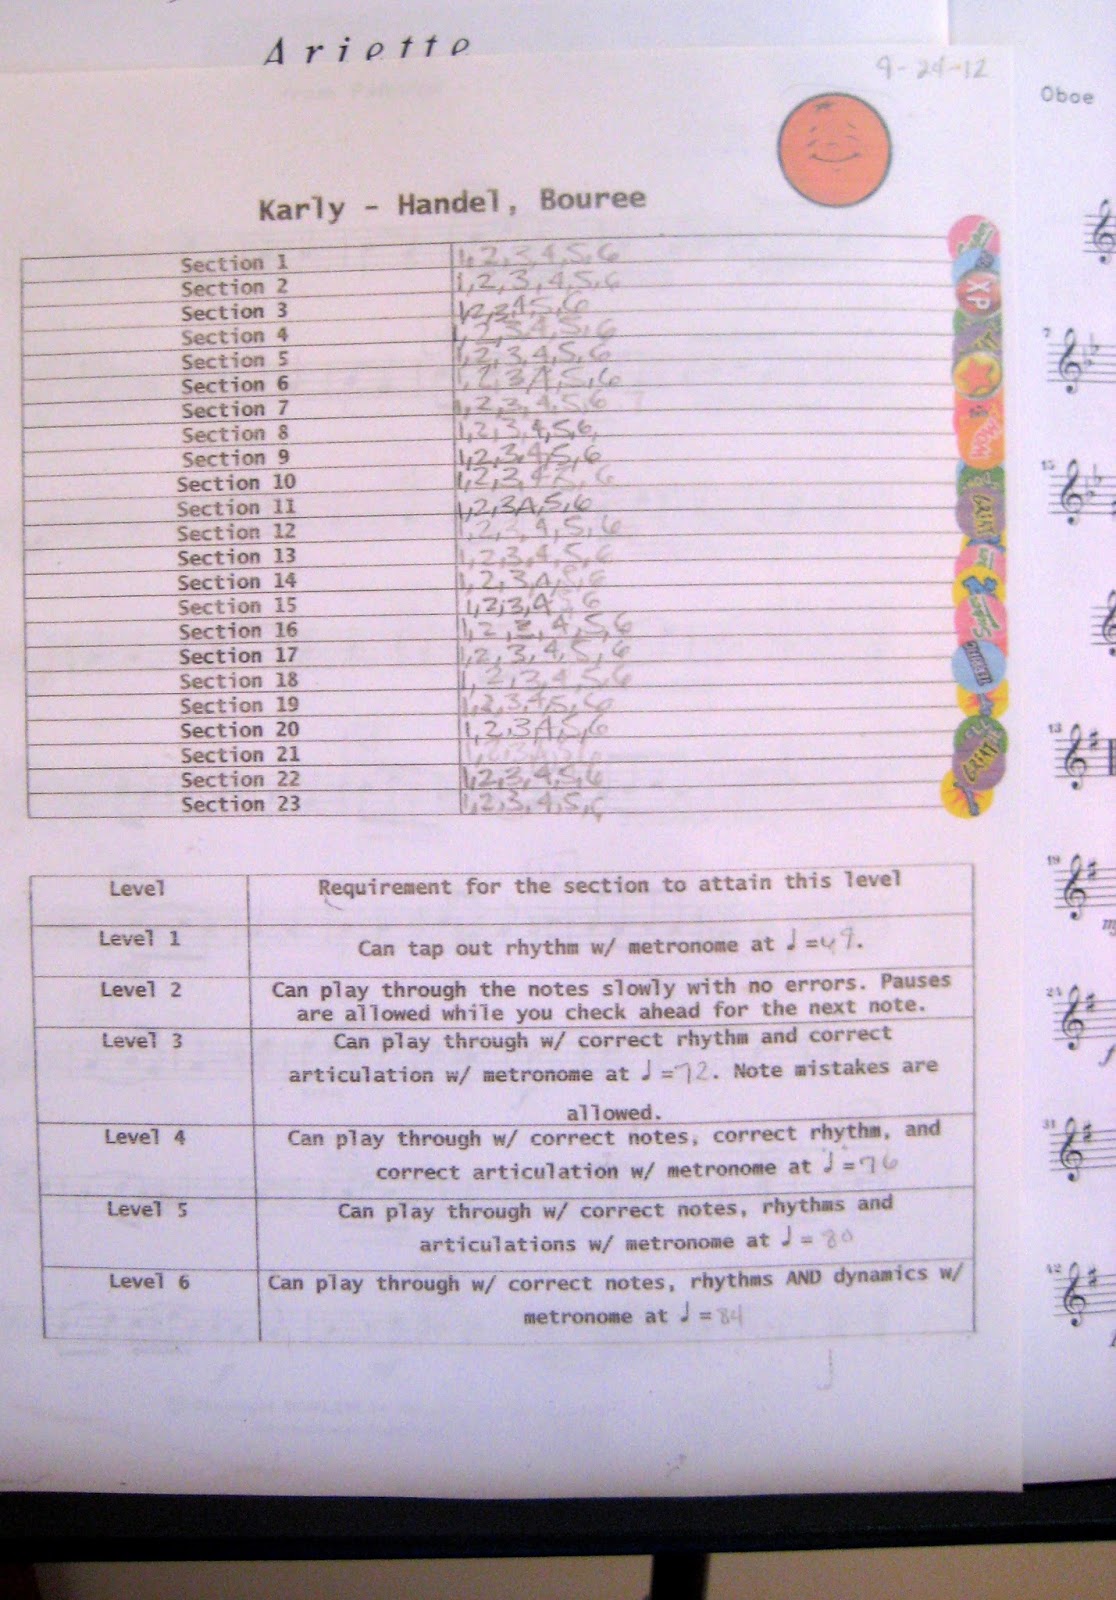 Ariette
9-24-12
Oboe
Karly - Handel, Bouree
Section 1 1,2,3,4,5,6
Section 2 1,2,3,4,5,6
Section 3 1,2,3,4,5,6
Section 4 1,2,3,4,5,6
Section 5 1,2,3,4,5,6
Section 6 1,2,3,4,5,6
Section 7 1,2,3,4,5,6
Section 8 1,2,3,4,5,6,
Section 9 1,2,3,4,5,6
Section 10 1,2,3,4,5,6
Section 11 1,2,3,4,5,6
Section 12 1,2,3,4,5,6
Section 13 1,2,3,4,5,6
Section 14 1,2,3,4,5,6
Section 15 1,2,3,4,5,6
Section 16 1,2,3,4,5,6
Section 17 1,2,3,4,5,6
Section 18 1,2,3,4,5,6
Section 19 1,2,3,4,5,6
Section 20 1,2,3,4,5,6
Section 21 1,2,3,4,5,6
Section 22 1,2,3,4,5,6
Section 23 1,2,3,4,5,6
XP
WOW
GREAT
GREAT
Level Requirement for the section to attain this level
Level 1 Can tap out rhythm w/ metronome at ♩=49.
Level 2 Can play through the notes slowly with no errors. Pauses
are allowed while you check ahead for the next note.
Level 3 Can play through w/ correct rhythm and correct
articulation w/ metronome at ♩=72. Note mistakes are
allowed.
Level 4 Can play through w/ correct notes, correct rhythm, and
correct articulation w/ metronome at ♩=76
Level 5 Can play through w/ correct notes, rhythms and
articulations w/ metronome at ♩=80
Level 6 Can play through w/ correct notes, rhythms AND dynamics w/
metronome at ♩=84
7
15
13
19
24
31
42
f